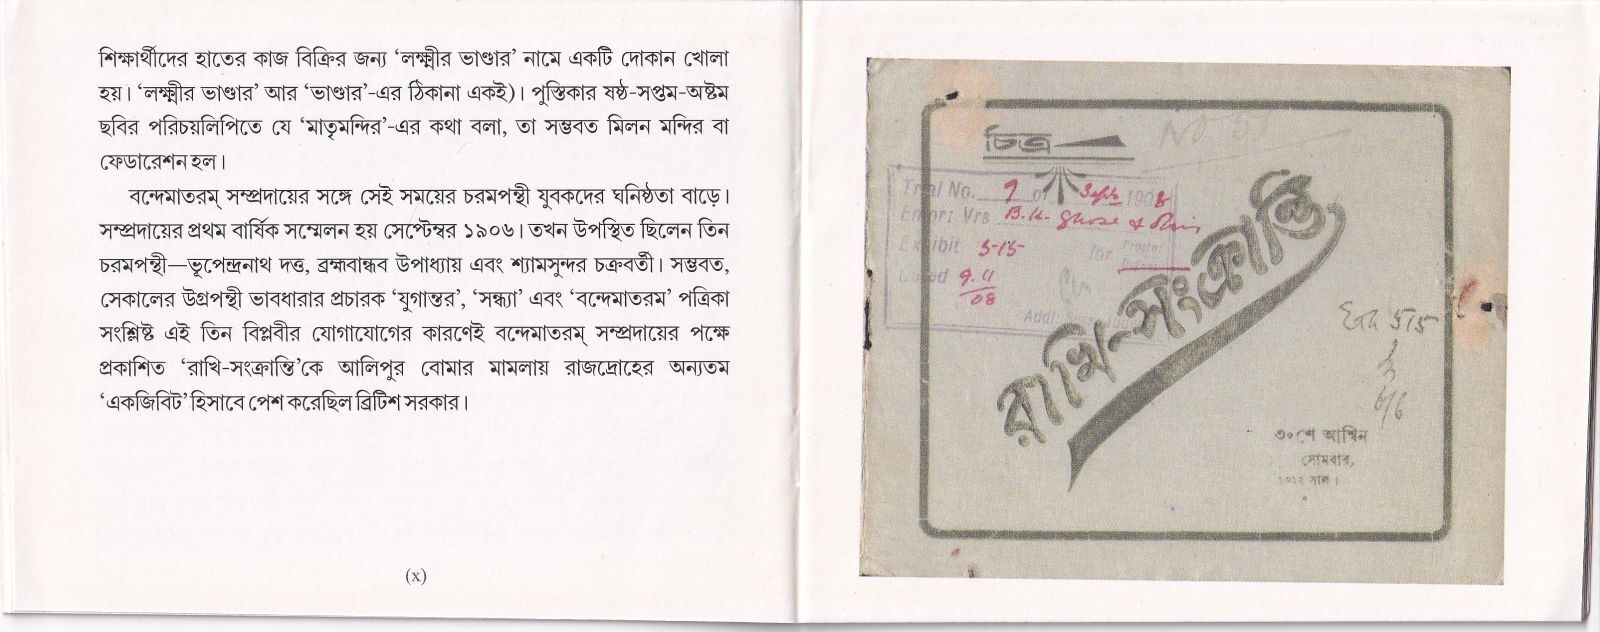 শিক্ষার্থীদের হাতের কাজ বিক্রির জন্য ‘লক্ষ্মীর ভাণ্ডার’ নামে একটি দোকান খোলা
হয়। ‘লক্ষ্মীর ভাণ্ডার’ আর ‘ভাণ্ডার’-এর ঠিকানা একই)। পুস্তিকার ষষ্ঠ-সপ্তম-অষ্টম
ছবির পরিচয়লিপিতে যে ‘মাতৃমন্দির’-এর কথা বলা, তা সম্ভবত মিলন মন্দির বা
ফেডারেশন হল।
বন্দেমাতরম্ সম্প্রদায়ের সঙ্গে সেই সময়ের চরমপন্থী যুবকদের ঘনিষ্ঠতা বাড়ে।
সম্প্রদায়ের প্রথম বার্ষিক সম্মেলন হয় সেপ্টেম্বর ১৯০৬। তখন উপস্থিত ছিলেন তিন
চরমপন্থী—ভূপেন্দ্রনাথ দত্ত, ব্রহ্মবান্ধব উপাধ্যায় এবং শ্যামসুন্দর চক্রবর্তী। সম্ভবত,
সেকালের উগ্রপন্থী ভাবধারার প্রচারক ‘যুগান্তর’, ‘সন্ধ্যা’ এবং ‘বন্দেমাতরম’ পত্রিকা
সংশ্লিষ্ট এই তিন বিপ্লবীর যোগাযোগের কারণেই বন্দেমাতরম্ সম্প্রদায়ের পক্ষে
প্রকাশিত ‘রাখি-সংক্রান্তি’কে আলিপুর বোমার মামলায় রাজদ্রোহের অন্যতম
‘একজিবিট’ হিসাবে পেশ করেছিল ব্রিটিশ সরকার।
(x)
চিত্র
No 5
Trial No. 9 of Sept 1908
Emor: Vrs B.K. Ghose & Ors
Exhibit 515 for
Dated 9.11
08
Addl:
রাখি-সংক্রান্তি
Ex 515
৩০শে আশ্বিন
সোমবার,
১৩১২ সাল।